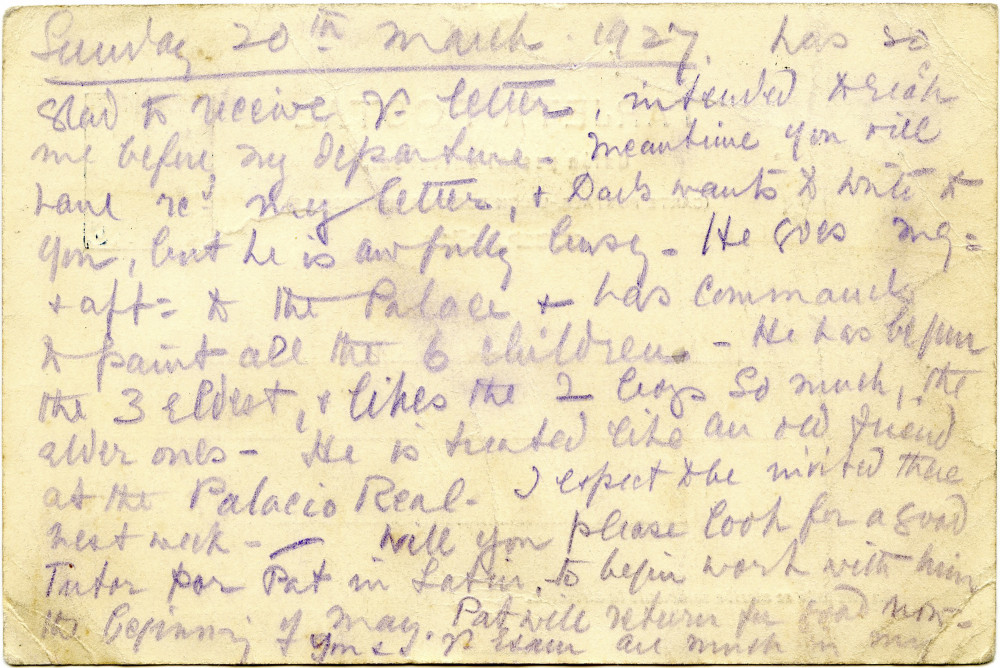 Sunday 20th March 1927. Was so
glad to receive yr letter, intended to reach
me before my departure - Meantime you will
have recd my letter, + Dads wants to write to
you, but he is awfully busy - He goes mg =
+ aft = to the Palace + has commands
to paint all the 6 children - He has begun
the 3 eldest, + likes the 2 boys so much, the
elder ones - He is treated like an old friend
at the Palacio Real - I expect to be invited there
next week - Will you please look for a good
Tutor for Pat in Latin, to begin work with him
the beginning of May. Pat will return for good now -
You & yr Exam are much in my